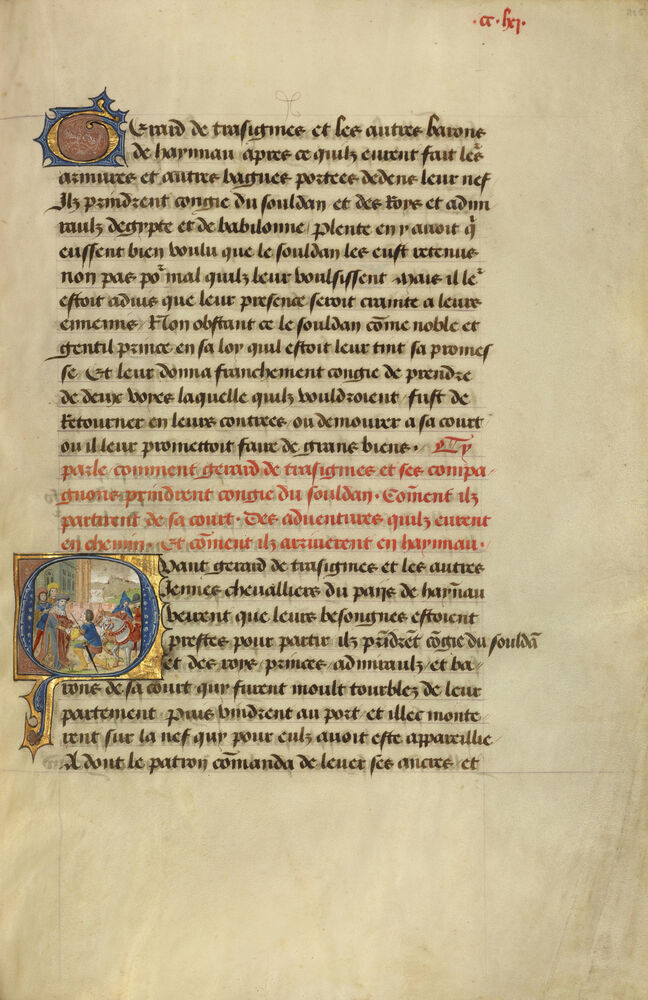 ·cc·lxj·
Gerard de trasignies et les autres barons
de haynnau apres ce quilz eurent fait leˢ
armures et autres bagues portees dedens leur nef
Ilz prindrent congie du souldan et des Roys et admi
raulz degypte et de babilonne / Plente en y auoit q̄
eussent bien voulu que le souldan les eust retenus
non pas poʳ mal quilz leur voulsissent Mais il leʳ
estoit aduis que leur presence seroit crainte a leurs
ennemis / Non obstant ce le souldan cōme noble et
gentil prince en sa loy quil estoit leur tint sa promes
se / Et leur donna franchement congie de prendre
de deux voyes laquelle quilz vouldroient / fust de
Retourner en leurs contrees / ou demourer a sa court
ou il leur promettoit faire de grans biens · Cy
parle comment gerard de trasignies et ses compa
gnons prindrent congie du souldan · Cōment ilz
partirent de sa court · Des aduentures quilz eurent
en chemin · Et cōment ilz arriuerent en haynnau ·
Quant gerard de trasignies et les autres
Jennes cheualliers du pays de haynau
veirent que leurs besongnes estoient
prestes pour partir ilz prīdrēt cōgie du souldā
et des roys / princes / admiraulz / et ba
rons de sa court quy furent moult tourblez de leur
partement / Puis vindrent au port / et illec monte
rent sur la nef quy pour eulz auoit este appareillie /
A dont le patron cōmanda de leuer ses ancres / et